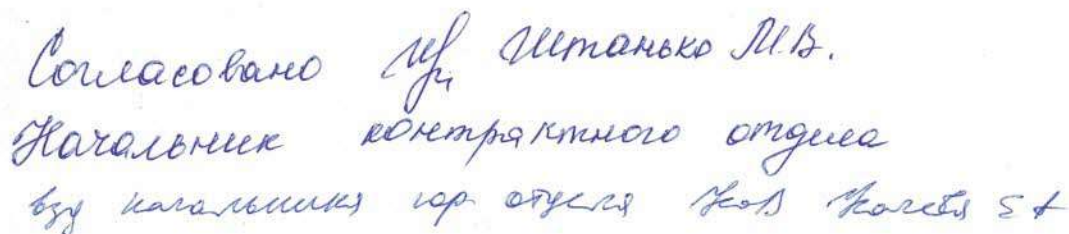 Согласовано Штанько М.В.
Начальник контрактного отдела
вру начальника юр отдела